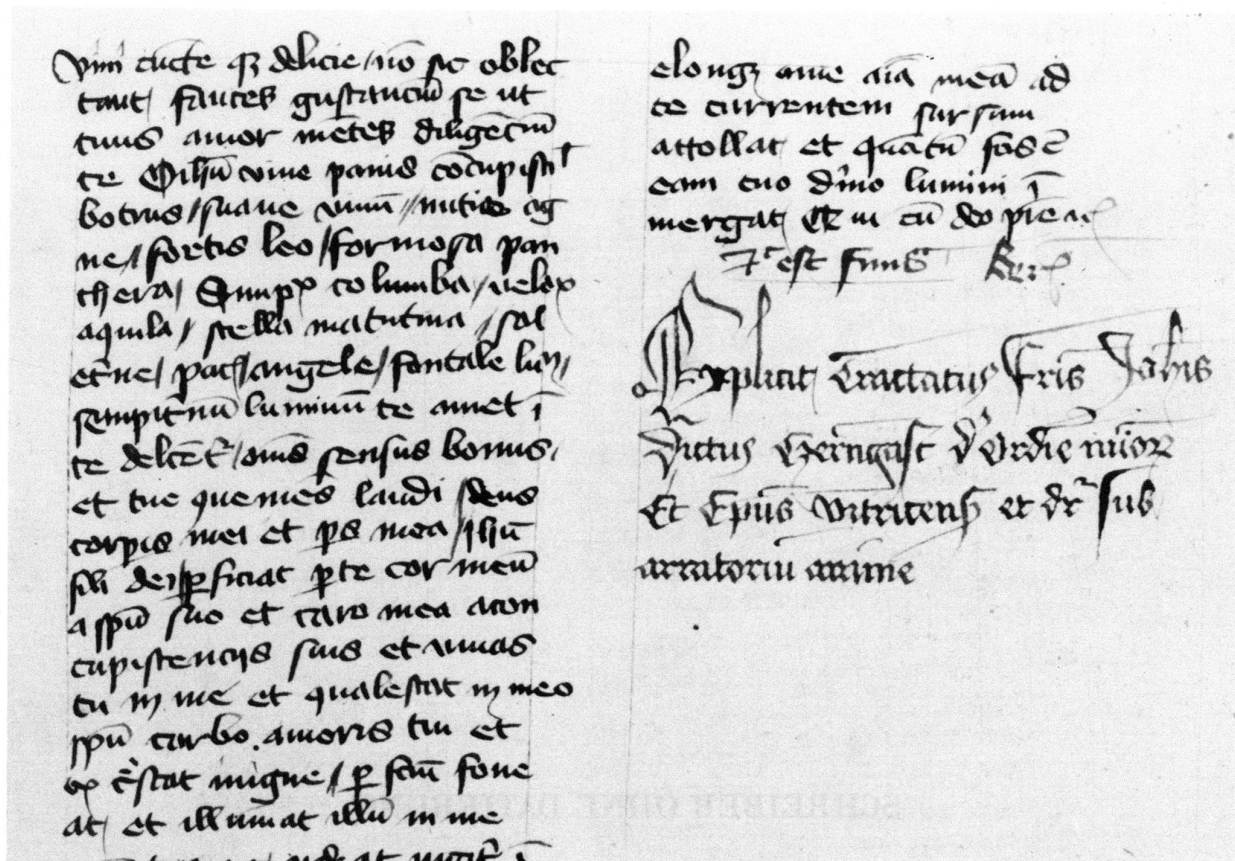 vini cuncte qz delicie / no sic oblec
tant fauces gustanciu se ut
tuus amor metes diligeciu
te O ihu vine panis
botrus / suaue vinu / mitis ag
ne / fortis leo / formosa pan
thera / Simpx columba / uelox
aquila / stella matutina / sol
et'ne / pacis angele / fontale lum /
sempit'nu luminu te amet i
te delcet' / omis sensus bonus /
et tue laudi deus
corpis mei et ps mea / ihu
fili dei / p ficiat p te cor meu
a spu suo et caro mea a con
cupiscencijs suis et viuas
tu in me et qualescat in meo
spu carbo amoris tui et
ex c'scat in igne / p fcm foue
at et illuminat illu in me
elongz ame aia mea ad
te currentem sursum
attollat et quatu fas e
eam tuo diuino lumini i
mergat Q ui cu deo pre
est finis
Explicit Tractatus fris Johis
Dictus Gerngast d' Ordine minorz
Et Epus et dr sub
arratoriu anime